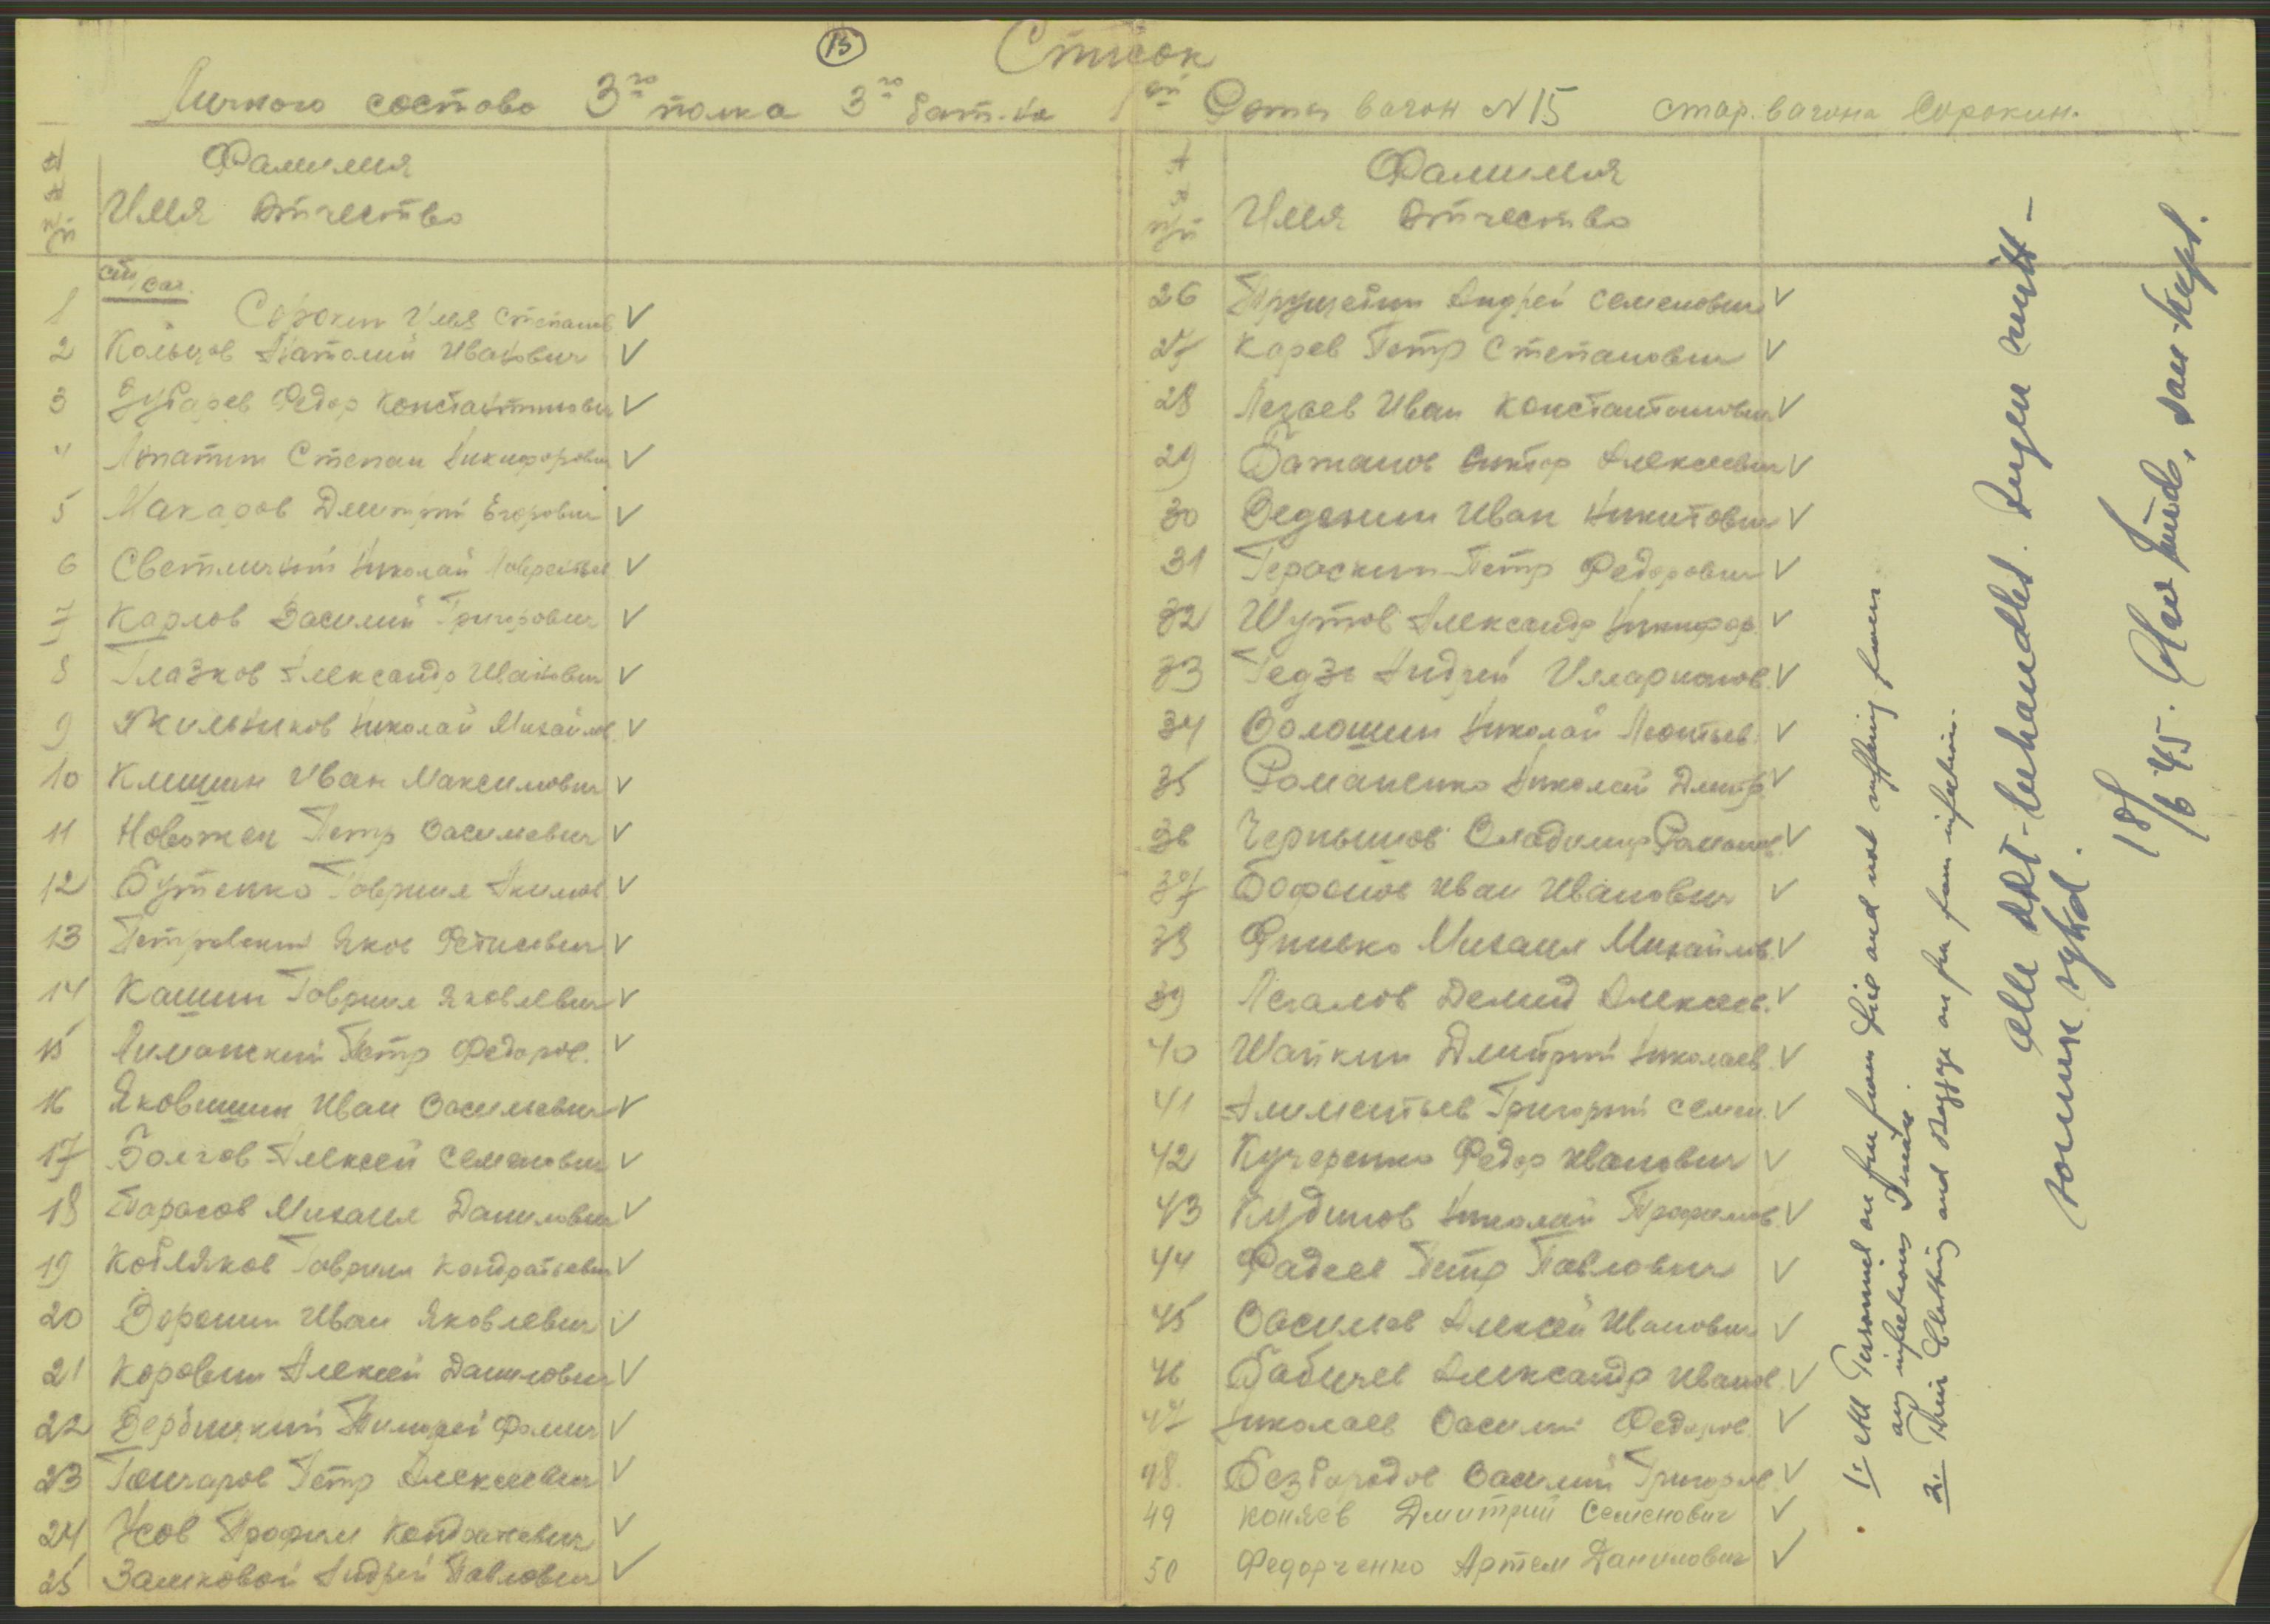 15
Список
Личного состава 3го полка 3го бат-на 1ой Роты вагон N 15 стар. вагона Сорокин.
Фамилия
Имя Отчество
п/п
ст. ваг.
1 Сорокин Илья Степанов V
2 Кольцов Анатолий Иванович V
3 Зубарев Федор Константинович V
4 Лопатин Степан Никифорович V
5 Макаров Дмитрий Егорович V
6 Светличный Николай V
7 Карлов Василий Григорович V
8 Глазков Александр Иванович V
9 Жильников Николай Михайлов. V
10 Клишин Иван Максимович V
11 Новожен Петр Василевич V
12 Бутенко Гавриил Акимов V
13 Петровский Яков V
14 Кашин Гавриил Яковлевич V
15 Лиманский Петр Федоров. V
16 Яковишин Иван Василевич V
17 Болгов Алексей Семенович V
18 Тарасов Михаил Данилович V
19 Кобляков Гаврил Кондратьевич V
20 Воронин Иван Яковлевич V
21 Коровин Алексей Данилович V
22 Вербицкий Тимофей Фомич V
23 Гончаров Петр Алексеевич V
24 Усов Трофим V
25 Замковой Андрей Павлович V
Фамилия
Имя Отчество
п/п
26 Андрей Семенович V
27 Карев Петр Степанович V
28 Иван Константинович V
29 Бажанов Виктор Алексеевич V
30 Веденин Иван Никитович V
31 Гераскин Петр Федорович V
32 Шутов Александр Никифор. V
33 Гедзь Андрей Илларионов. V
34 Волошин Николай Леонтьев. V
35 Романенко Николай Дмитр. V
36 Чернышов Владимир Романов. V
37 Иван Иванович V
38 Михаил Михайлов. V
39 Легалов Демид Алексеев. V
40 Шайкин Дмитрий Николаев. V
41 Алиментьев Григорий Семен. V
42 Кучеренко Федор Иванович V
43 Кудинов Николай Трофимов. V
44 Фадеев Петр Павлович V
45 Васильев Алексей Иванович V
46 Бабичев Александр Иванов. V
47 Николаев Василий Федоров. V
48. Безбородов Василий Григоров. V
49 Коняев Дмитрий Семенович V
50 Федорченко Артем Данилович V
1:- All Personnel are free from lice and not suffering from
any infectious disease.
2:- Their Clothing and Baggage are free from infection.
Alle DDT-behandlet. Ingen smitt-
somme sykd.
18/6 45. Olav, san. kapt.